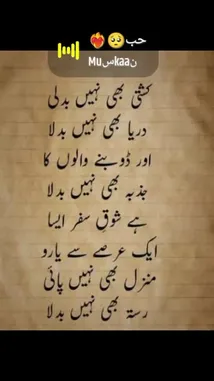 حب🥺❤️‍🔥
Muسkaaن
کشتی بھی نہیں بدلی
دریا بھی نہیں بدلا
اور ڈوبنے والوں کا
جذبہ بھی نہیں بدلا
ہے شوقِ سفر ایسا
ایک عرصے سے یارو
منزل بھی نہیں پائی
رستہ بھی نہیں بدلا